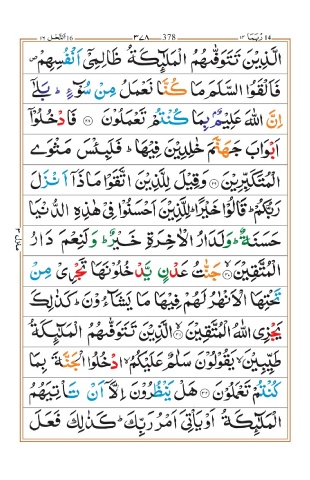 النحل ١٦ ٣٧٨ 378 ربما ١٤
الَّذِيْنَ تَتَوَفّٰىهُمُ الْمَلٰٓئِكَةُ ظَالِمِيْۤ اَنْفُسِهِمْ ۪
فَاَلْقَوُا السَّلَمَ مَا كُنَّا نَعْمَلُ مِنْ سُوْٓءٍ ؕ بَلٰۤى
اِنَّ اللّٰهَ عَلِيْمٌۢ بِمَا كُنْتُمْ تَعْمَلُوْنَ ﴿٢٨﴾ فَادْخُلُوْۤا
اَبْوَابَ جَهَنَّمَ خٰلِدِيْنَ فِيْهَا ؕ فَلَبِئْسَ مَثْوَى
الْمُتَكَبِّرِيْنَ ﴿٢٩﴾ وَقِيْلَ لِلَّذِيْنَ اتَّقَوْا مَاذَاۤ اَنْزَلَ
رَبُّكُمْ ؕ قَالُوْا خَيْرًا ؕ لِلَّذِيْنَ اَحْسَنُوْا فِيْ هٰذِهِ الدُّنْيَا
حَسَنَةٌ ؕ وَلَدَارُ الْاٰخِرَةِ خَيْرٌ ؕ وَلَنِعْمَ دَارُ
الْمُتَّقِيْنَ ﴿٣٠﴾ جَنّٰتُ عَدْنٍ يَّدْخُلُوْنَهَا تَجْرِيْ مِنْ
تَحْتِهَا الْاَنْهٰرُ لَهُمْ فِيْهَا مَا يَشَآءُوْنَ ؕ كَذٰلِكَ
يَجْزِي اللّٰهُ الْمُتَّقِيْنَ ﴿٣١﴾ الَّذِيْنَ تَتَوَفّٰىهُمُ الْمَلٰٓئِكَةُ
طَيِّبِيْنَ ۙ يَقُوْلُوْنَ سَلٰمٌ عَلَيْكُمُ ۙ ادْخُلُوا الْجَنَّةَ بِمَا
كُنْتُمْ تَعْمَلُوْنَ ﴿٣٢﴾ هَلْ يَنْظُرُوْنَ اِلَّاۤ اَنْ تَاْتِيَهُمُ
الْمَلٰٓئِكَةُ اَوْ يَاْتِيَ اَمْرُ رَبِّكَ ؕ كَذٰلِكَ فَعَلَ